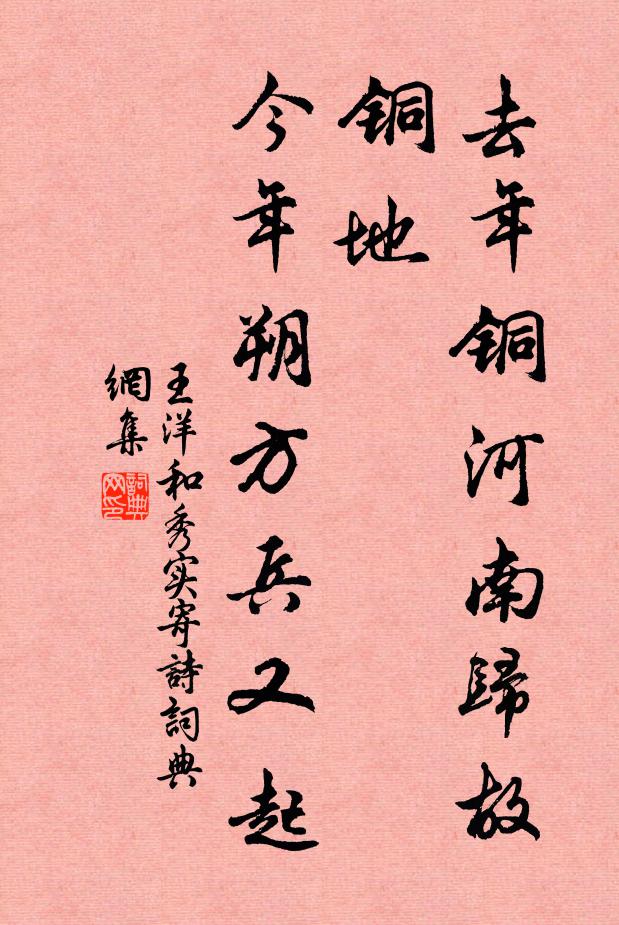 去年铜河南歸故
铜地
今年朔方兵又起
王洋和秀实寄詩詞典
網集
詞典
网印